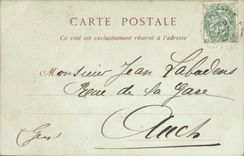 CARTE POSTALE
Ce côté est exclusivement réservé à l'adresse
Monsieur Jean Labadens
Rue de la Gare
Auch
Gers